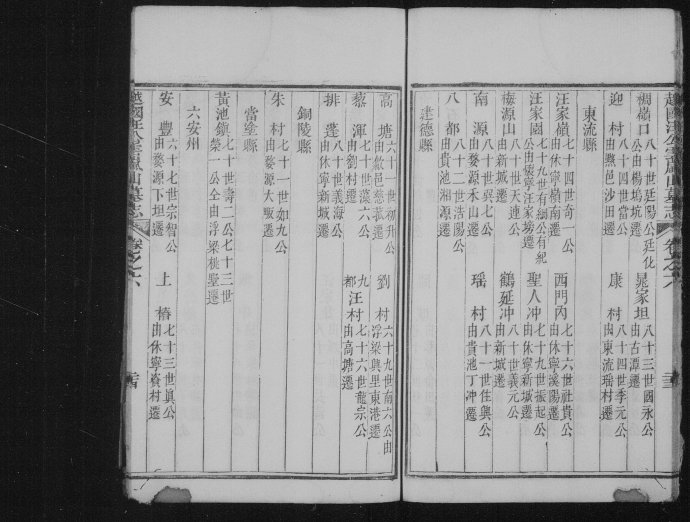 越國汪公
卷之六
榻嶺口 八十世廷陽公廷化公由楊塢坑遷 晁家坦 八十三世國永公由古潭遷
迎村 八十四世當公由黟邑沙田遷 康村 八十四世季元公由東流瑶村遷
東流縣
汪家嶺 七十四世奇一公由休寧嶺南遷 西門內 七十六世社貴公由休寧溪陽遷
汪家園 七十九世有綱公有紀公由婺寧汪家塝遷 聖人冲 七十九世振起公由休寧新城遷
梅源山 八十世天連公由新城遷 鶴延冲 八十世義元公由新城遷
南源 八十世與七公由婺源禾山遷 瑶村 八十一世佳與公由貴池丁冲遷
八都 八十二世浩陽公由貴池湘源遷
建德縣
高塘 六十一世初升公由歙邑慈菰遷 劉村 六十九世南六公由浮梁興里東港遷
蔡渾 七十世藻六公由劉村遷 九都汪村 七十六世龍宗公由高塘遷
排蓬 八十世義海公由休寧新城遷
銅陵縣
朱村 七十一世如九公由婺源大畈遷
當塗縣
黃池鎮 七十世壽二公七十三世榮一公全由浮梁桃墅遷
六安州
安豐 六十七世宗智公由婺源下坦遷 上椿 七十三世眞公由休寧資村遷
越國汪公墓志
卷之六